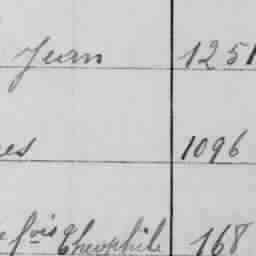 Jean 1251
es 1096
fois Théophile 168